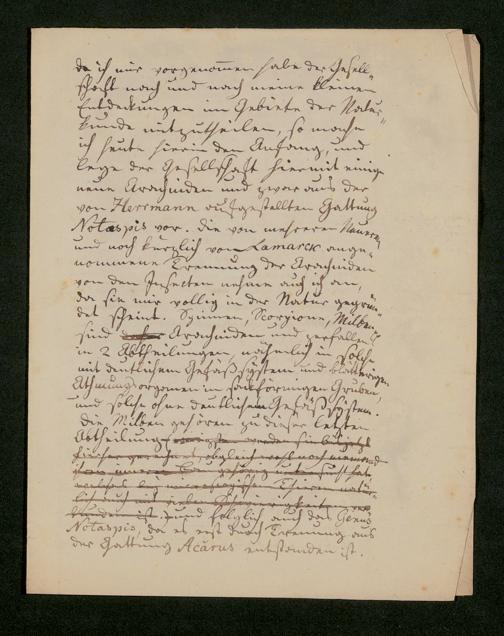 da ich mir vorgenommen habe der Gesell-
schaft nach und nach meine kleinen
Entdeckungen im Gebiete der Natur-
kunde mitzutheilen, so mache
ich heute hierin den Anfang, und
lege der Gesellschaft hiermit einige
neue Arachniden und zwar aus der
von Herrmann aufgestellten Gattung
Notaspis vor. Die von mehreren
und noch kürzlich von Lamarck ange-
nommene Trennung der Arachniden
von den Insecten nehme auch ich an,
da sie mir völlig in der Natur gegrün-
det scheint. Spinnen, Scorpione, Milben
sind Arachniden und zerfallen
in 2 Abtheilungen, nähmlich in solche
mit deutlichem Gefäßsystem und
Athmungsorganen in sackförmigen Gruben,
und solche ohne deutlichem Gefäßsystem.
Die Milben gehören zu dieser letzten
Abtheilung
obgleich wohl noch niemand
ist, und folglich auch das Genus
Notaspis, da es erst durch Trennung aus
der Gattung Acarus entstanden ist.